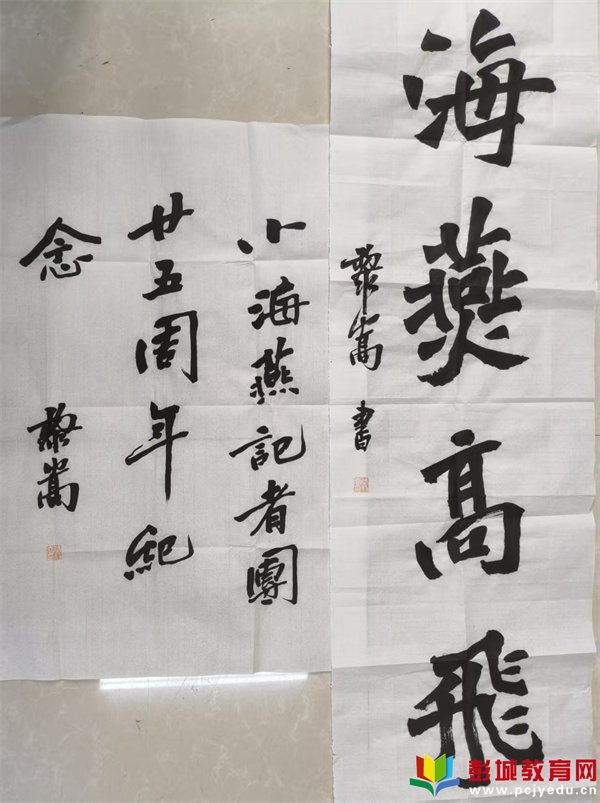 海燕高飛
嵩書
小海燕記者團
廿五周年紀
念
嵩
彭城教育网
www.pcjyedu.cn